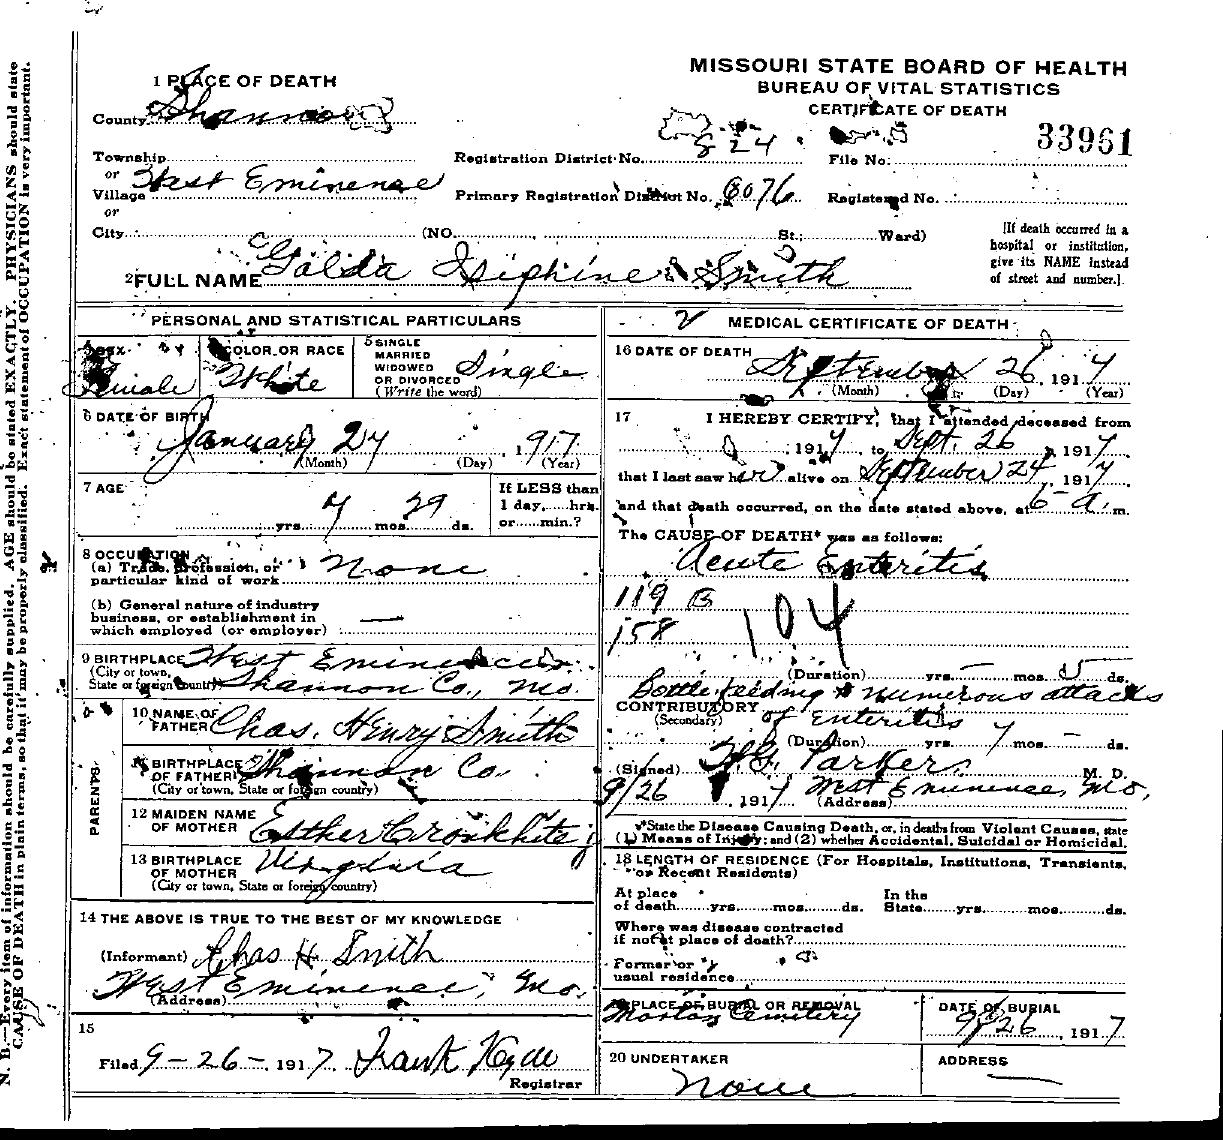 MISSOURI STATE BOARD OF HEALTH
BUREAU OF VITAL STATISTICS
CERTIFICATE OF DEATH
1 PLACE OF DEATH
County Shannon
Township
or
Village West Eminence
or
City (NO. St.; Ward)
Registration District No. 824
File No. 33961
Primary Registration District No. 6076
Registered No.
[If death occurred in a
hospital or institution,
give its NAME instead
of street and number.]
2 FULL NAME Golda Isiphine Smith
PERSONAL AND STATISTICAL PARTICULARS
SEX
Female
COLOR OR RACE
White
5 SINGLE
MARRIED
WIDOWED
OR DIVORCED
(Write the word)
Single
6 DATE OF BIRTH
January 27, 1917
(Month) (Day) (Year)
7 AGE
yrs. 7 mos. 29 ds.
If LESS than
1 day, hrs.
or min.?
8 OCCUPATION
(a) Trade, profession, or
particular kind of work None
(b) General nature of industry
business, or establishment in
which employed (or employer) —
9 BIRTHPLACE West Eminence
(City or town,
State or foreign country) Shannon Co., Mo.
PARENTS
10 NAME OF
FATHER Chas. Henry Smith
BIRTHPLACE
OF FATHER Shannon Co.
(City or town, State or foreign country)
12 MAIDEN NAME
OF MOTHER Esther Cronkhite
13 BIRTHPLACE
OF MOTHER Virginia
(City or town, State or foreign country)
14 THE ABOVE IS TRUE TO THE BEST OF MY KNOWLEDGE
(Informant) Chas H. Smith
(Address) West Eminence, Mo.
15
Filed 9-26-, 1917. Frank Hyde
Registrar
MEDICAL CERTIFICATE OF DEATH
16 DATE OF DEATH
September 26, 1917
(Month) (Day) (Year)
17 I HEREBY CERTIFY, that I attended deceased from
1917, to Sept. 26, 1917
that I last saw her alive on September 24, 1917
and that death occurred, on the date stated above, at 6 a. m.
The CAUSE OF DEATH* was as follows:
Acute Enteritis
119 B
158
104
(Duration) yrs. — mos. 5 ds.
Bottle feeding & numerous attacks
CONTRIBUTORY of Enteritis
(Secondary)
(Duration) yrs. 7 mos. — ds.
(Signed) Parker M. D.
9/26, 1917 (Address) West Eminence, Mo.
*State the Disease Causing Death, or, in deaths from Violent Causes, state
(1) Means of Injury; and (2) whether Accidental, Suicidal or Homicidal.
18 LENGTH OF RESIDENCE (For Hospitals, Institutions, Transients,
or Recent Residents)
At place
of death yrs. mos. ds.
In the
State yrs. mos. ds.
Where was disease contracted
if not at place of death?
Former or
usual residence
PLACE OF BURIAL OR REMOVAL
Cemetery
DATE OF BURIAL
9/26, 1917
20 UNDERTAKER
None
ADDRESS
—
N. B.—Every item of information should be carefully supplied. AGE should be stated EXACTLY. PHYSICIANS should state
CAUSE OF DEATH in plain terms, so that it may be properly classified. Exact statement of OCCUPATION is very important.